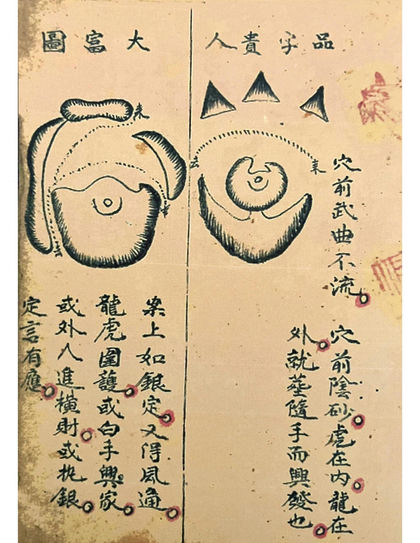 品字貴人
来
去
穴前武曲不流穴前陰砂虎在內龍在
外就塟隨手而興發也
大富圖
来
去
案上如銀定又得風
龍虎圍護或白手興家
或外人進橫財或 銀
定言有應